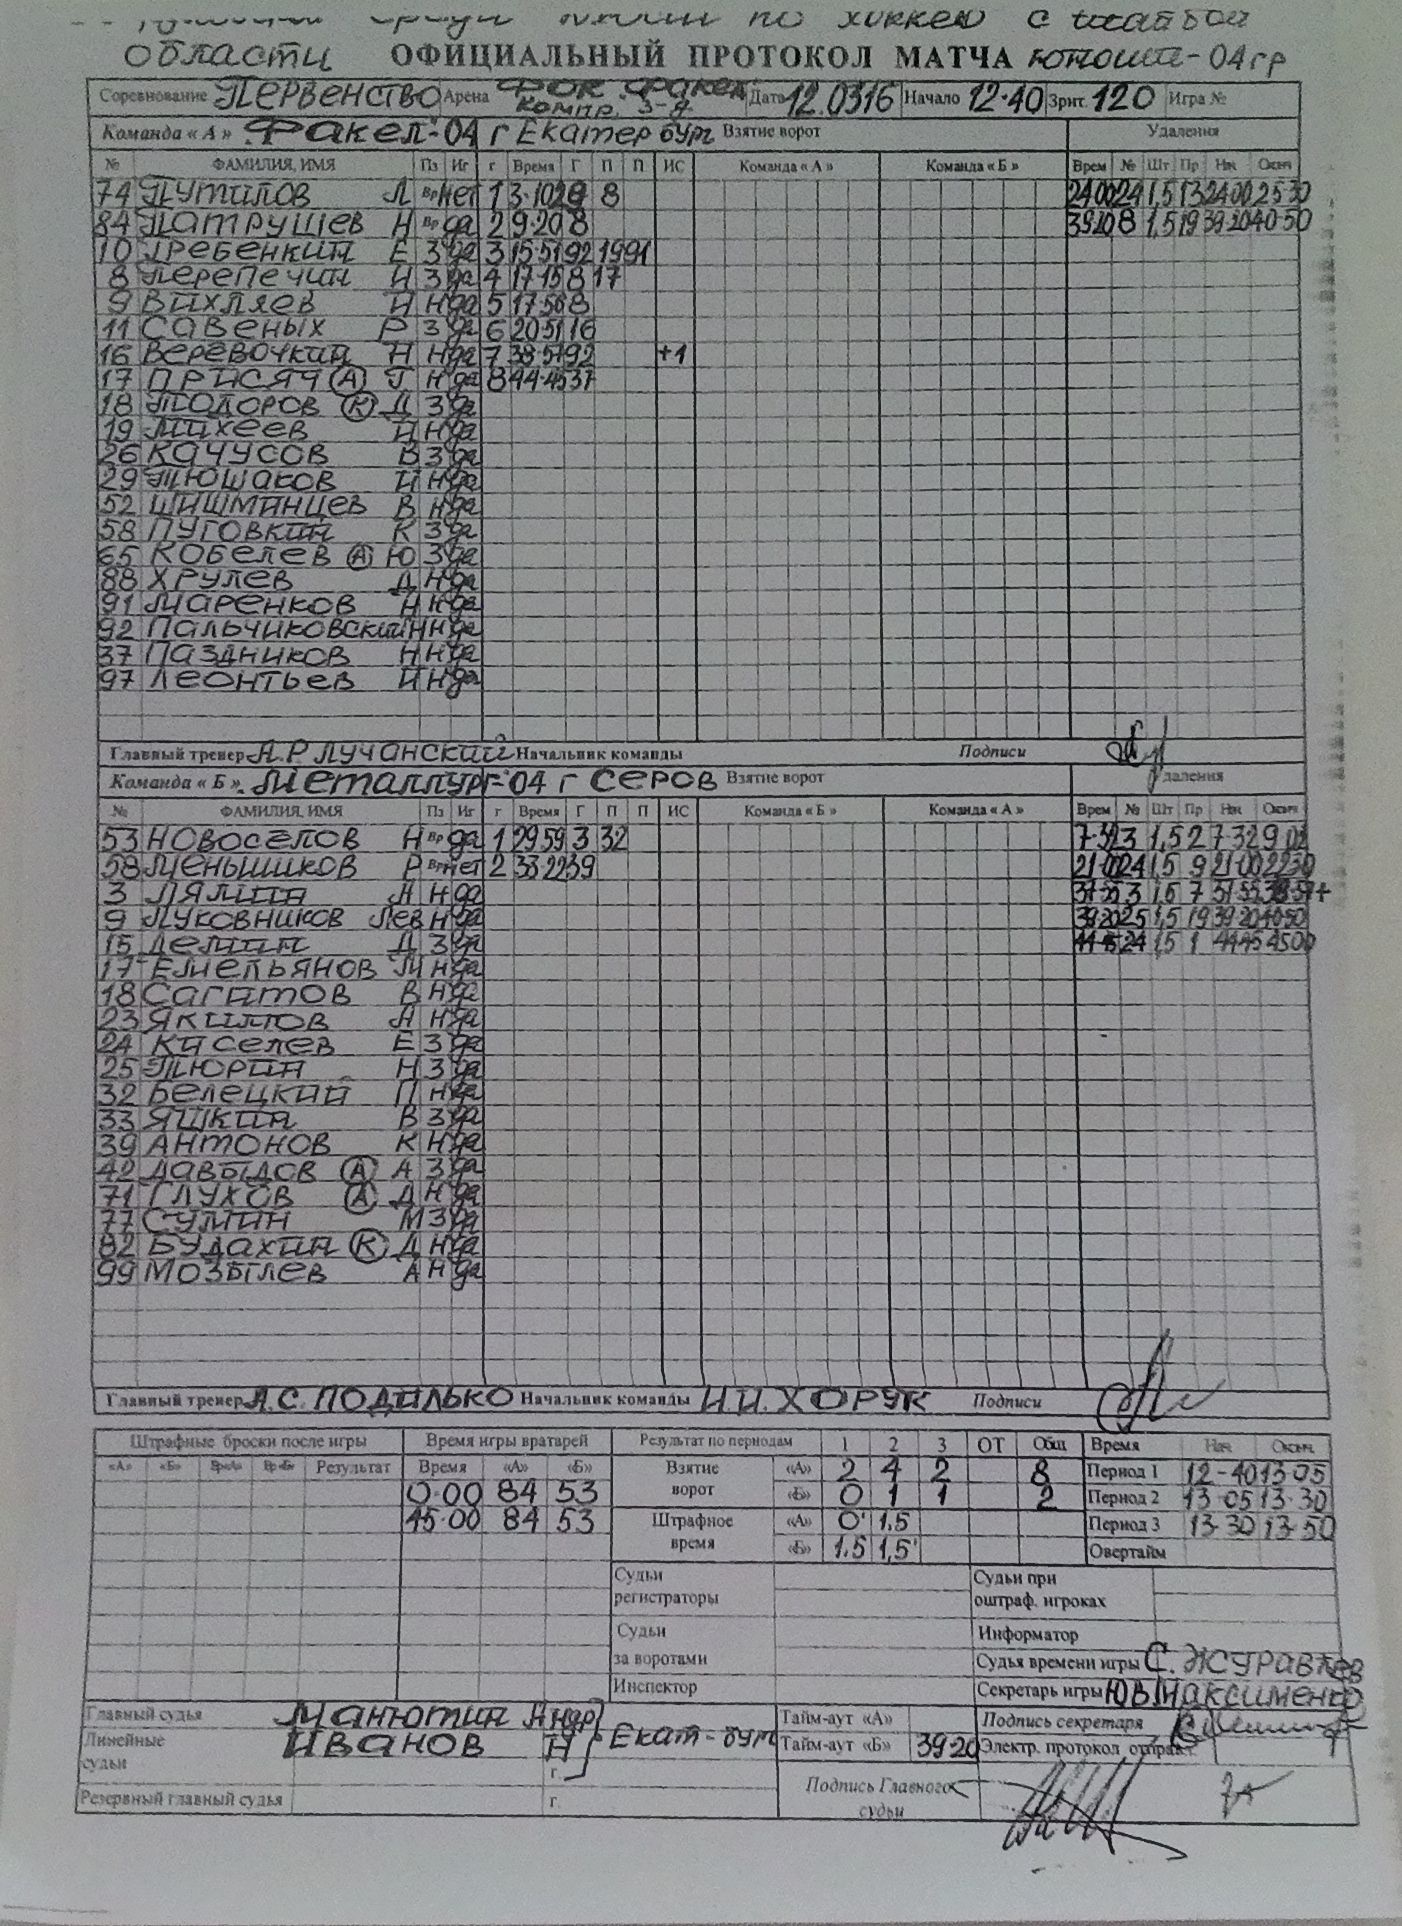 среди по хоккею с шайбой
области ОФИЦИАЛЬНЫЙ ПРОТОКОЛ МАТЧА юноши-04гр
Соревнование Первенство Арена ФОК Факел Дата 12.0316 Начало 12·40 Зрит. 120 Игра №
Команда «А» Факел-04 г Екатербург Взятие ворот Удаления
№ ФАМИЛИЯ, ИМЯ Пз Иг г Время Г П П ИС Команда «А» Команда «Б» Врем № Шт Пр Нач Оконч
74 Путилов Л Вр нет 1 3·10 8 2400 24 1,5 13 2400 25·30
84 Патрушев Н Вр да 2 9·20 8 3920 8 1,5 19 39·20 40·50
10 Гребенкин Е З да 3 15·51 92 19 91
8 Перепечин И З да 4 17·15 8 17
9 Вихляев И Н да 5 17·56 8
11 Савеных Р З да 6 20·51 16
16 Веревочкин Н Н да 7 38·57 92 +1
17 Присяч (А) Г Н да 8 44·45 37
18 Тодоров (К) Д З да
19 Михеев И Н да
26 Качусов В З да
29 Тюшаков И Н да
52 Шишминцев В Н да
58 Пуговкин К З да
65 Кобелев (А) Ю З да
88 Хрулев Д Н да
91 Маренков Н Н да
92 Пальчиковский Н Н да
37 Паздников Н Н да
97 Леонтьев И Н да
Главный тренер А.Р Лучанский Начальник команды Подписи
Команда «Б» Металлург-04 г Серов Взятие ворот Удаления
№ ФАМИЛИЯ, ИМЯ Пз Иг г Время Г П П ИС Команда «Б» Команда «А» Врем № Шт Пр Нач Оконч
53 Новоселов Н Вр да 1 29 59 3 32 7·32 3 1,5 2 7·32 9 02
58 Меньшиков Р Вр нет 2 38·22 39 21·00 24 1,5 9 21·00 22 30
3 Лялин А Н да 37·55 3 1,5 7 37·55 38·57+
9 Луковников Лев Н да 39·20 25 1,5 19 39·20 40·50
15 Делин Д З да 44·45 24 1,5 1 44·45 4500
17 Емельянов М Н да
18 Сагитов В Н да
23 Якимов А Н да
24 Киселев Е З да
25 Тюрин Н З да
32 Белецкий П Н да
33 Яшкин В З да
39 Антонов К Н да
42 Давыдов (А) А З да
71 Глухов (А) Д Н да
77 Сумин М З да
82 Будахин (К) Д Н да
99 Мозылев А Н да
Главный тренер А.С. Подилько Начальник команды И.И. Хорук Подписи
Штрафные броски после игры Время игры вратарей Результат по периодам 1 2 3 ОТ Общ Время Нач Оконч
«А» «Б» Вр«А» Вр«Б» Результат Время «А» «Б» Взятие ворот «А» 2 4 2 8 Период 1 12-40 13 05
0·00 84 53 «Б» 0 1 1 2 Период 2 13·05 13·30
45·00 84 53 Штрафное время «А» 0 1,5 Период 3 13·30 13·50
«Б» 1.5 1,5 Овертайм
Судьи регистраторы Судьи при оштраф. игроках
Судьи за воротами Информатор
Судья времени игры С. Журавлев
Инспектор Секретарь игры Ю.В Максименко
Главный судья Манютин Андр Екат-бург Тайм-аут «А» Подпись секретаря
Линейные судьи Иванов Н Тайм-аут «Б» 39·20 Электр. протокол отправ.
г. Подпись Главного судьи
Резервный главный судья г.